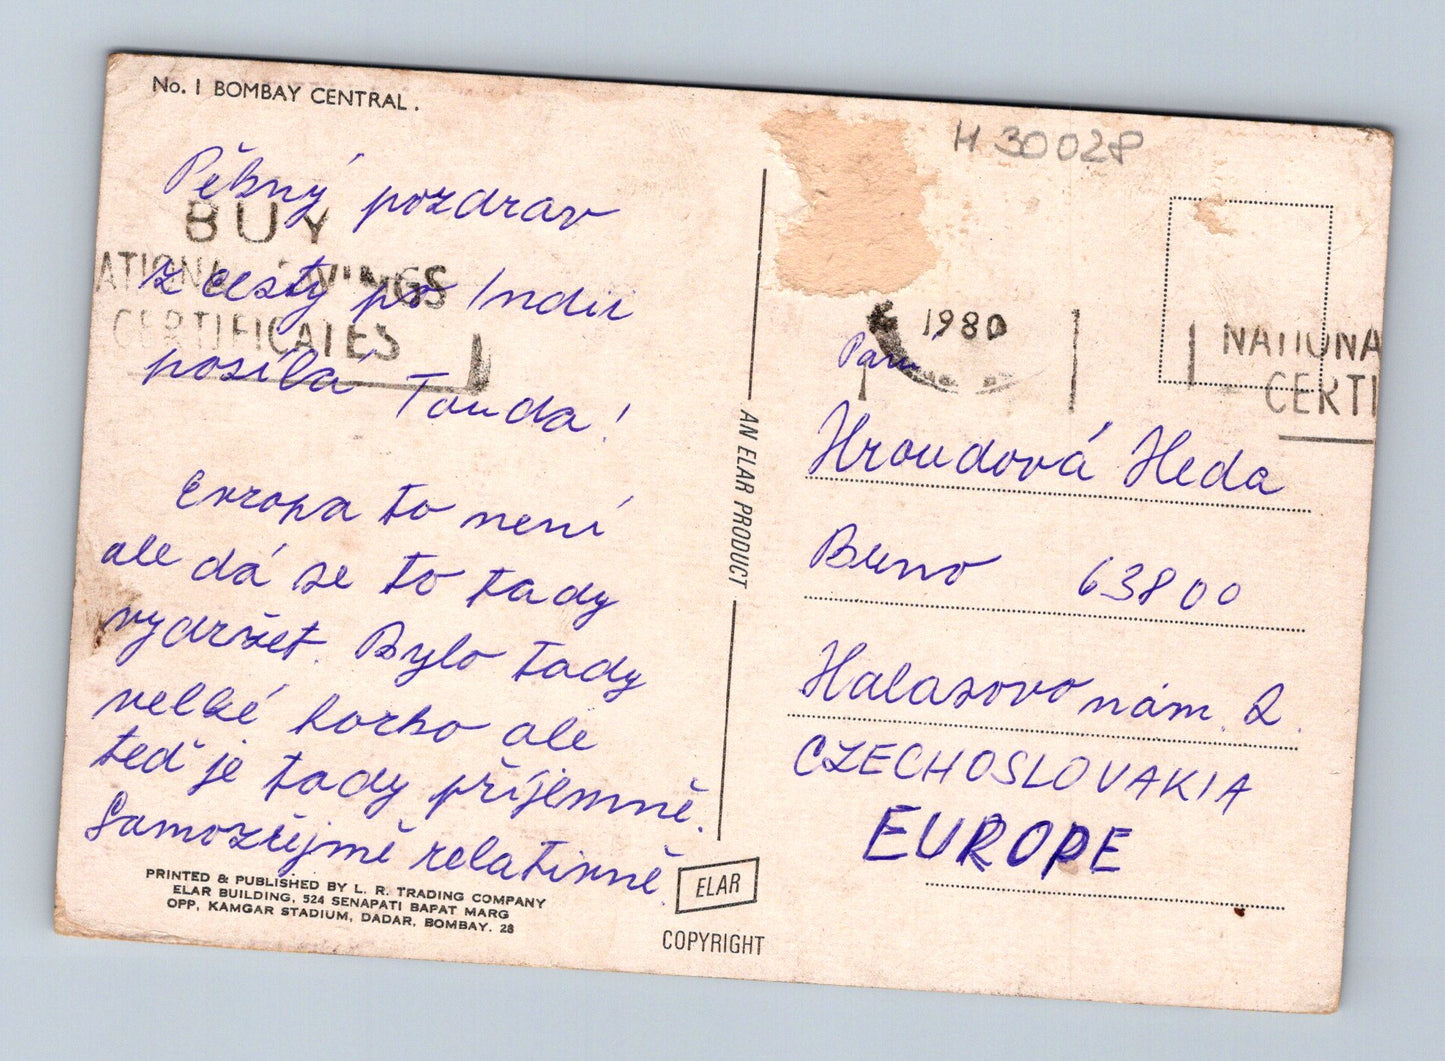 No. 1 BOMBAY CENTRAL.
Pěkný pozdrav
z cesty po Indii
posílá Tonda!
Evropa to není
ale dá se to tady
vydržet. Bylo tady
velké horko ale
teď je tady příjemně.
Samozřejmě relativně.
BUY
NATIONAL SAVINGS
CERTIFICATES
PRINTED & PUBLISHED BY L. R. TRADING COMPANY
ELAR BUILDING, 524 SENAPATI BAPAT MARG
OPP. KAMGAR STADIUM, DADAR, BOMBAY. 28
AN ELAR PRODUCT
ELAR
COPYRIGHT
H 30028
1980
NATIONA
CERTI
Paní
Hroudová Heda
Brno 63800
Halasovo nám. 2.
CZECHOSLOVAKIA
EUROPE